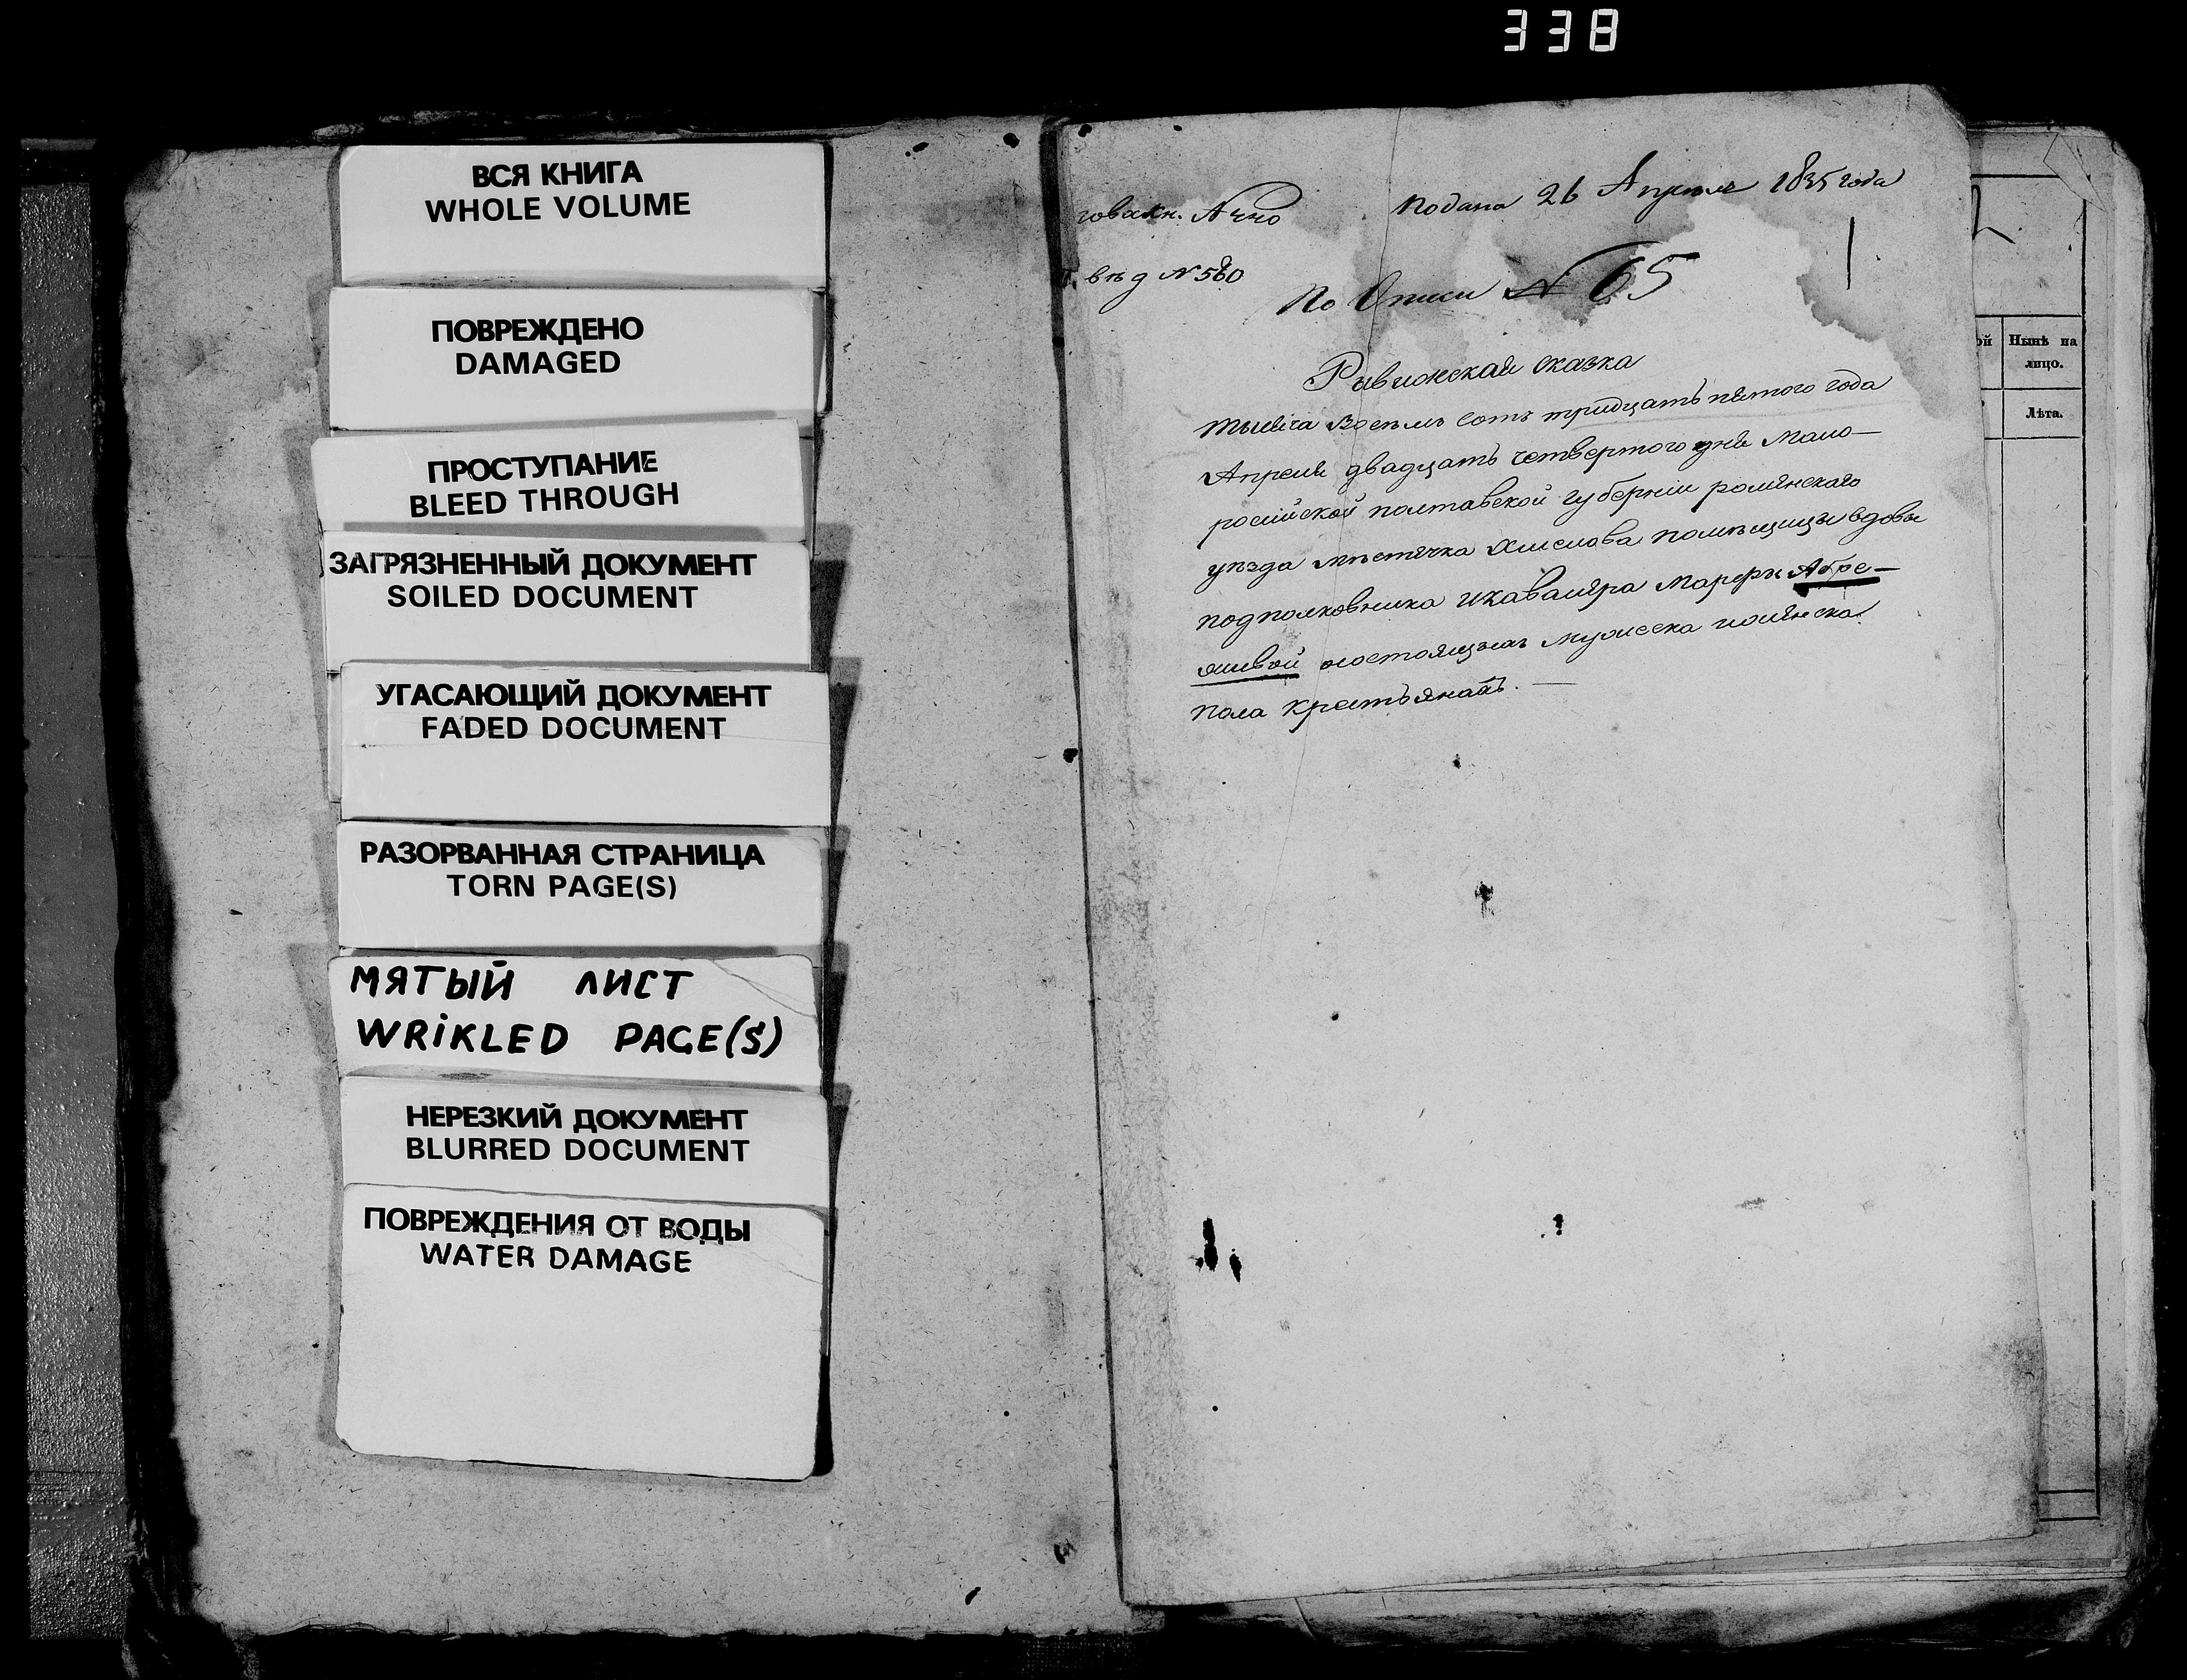 338
ВСЯ КНИГА
WHOLE VOLUME
ПОВРЕЖДЕНО
DAMAGED
ПРОСТУПАНИЕ
BLEED THROUGH
ЗАГРЯЗНЕННЫЙ ДОКУМЕНТ
SOILED DOCUMENT
УГАСАЮЩИЙ ДОКУМЕНТ
FADED DOCUMENT
РАЗОРВАННАЯ СТРАНИЦА
TORN PAGE(S)
МЯТЫЙ ЛИСТ
WRIKLED PAGE(S)
НЕРЕЗКИЙ ДОКУМЕНТ
BLURRED DOCUMENT
ПОВРЕЖДЕНИЯ ОТ ВОДЫ
WATER DAMAGE
Подана 26 Апреля 1835 года
1
По Описи № 65
Ревижская сказка
тысяча восемь сотъ тридцать пятого года
Апреля двадцать четвертого дня Мало-
росийской полтавской губерніи роменскаго
уезда местечка Смелова помещицы вдовы
подполковника икавалера Марфы
состоящихъ мужеска иженска
пола крестьянахъ. —
ой
Нынѣ на
лицо.
Лѣта.